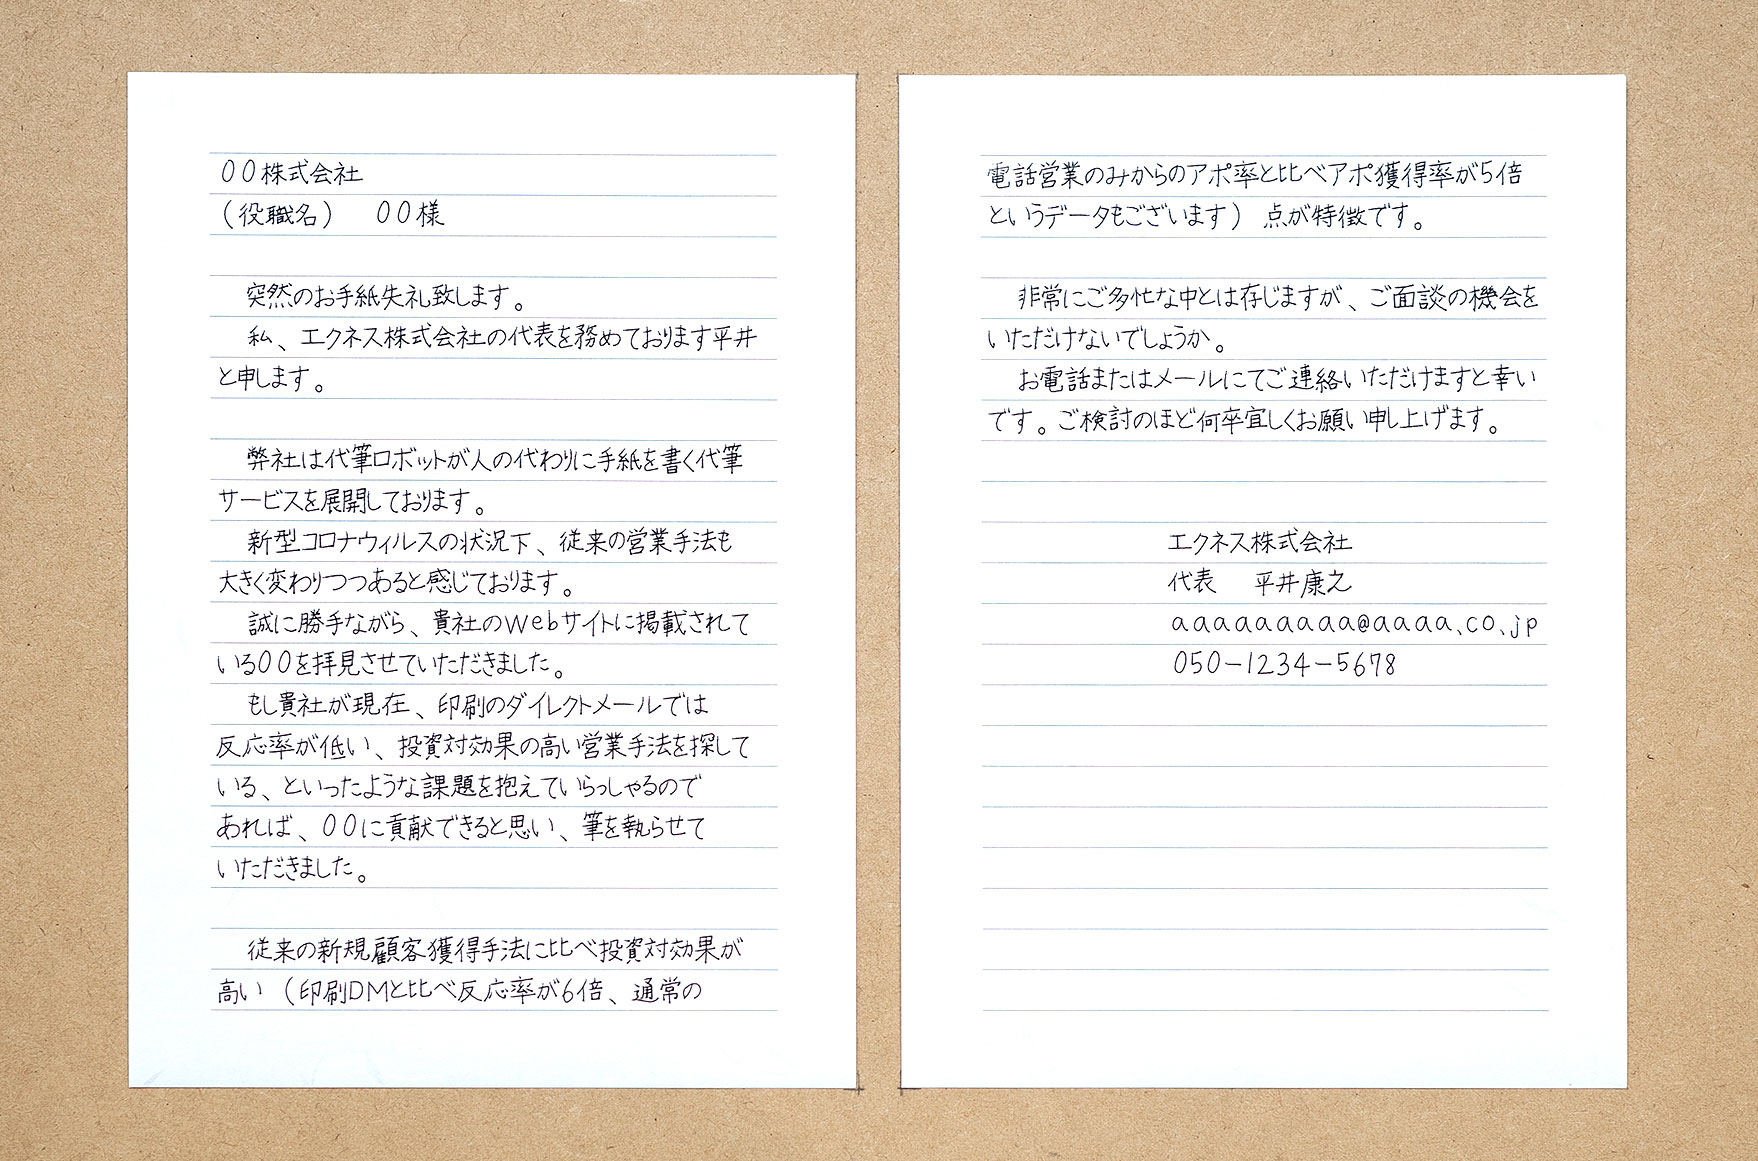 〇〇株式会社
（役職名）　〇〇様
突然のお手紙失礼致します。
私、エクネス株式会社の代表を務めております平井
と申します。
弊社は代筆ロボットが人の代わりに手紙を書く代筆
サービスを展開しております。
新型コロナウィルスの状況下、従来の営業手法も
大きく変わりつつあると感じております。
誠に勝手ながら、貴社のWebサイトに掲載されて
いる〇〇を拝見させていただきました。
もし貴社が現在、印刷のダイレクトメールでは
反応率が低い、投資対効果の高い営業手法を探して
いる、といったような課題を抱えていらっしゃるので
あれば、〇〇に貢献できると思い、筆を執らせて
いただきました。
従来の新規顧客獲得手法に比べ投資対効果が
高い（印刷DMと比べ反応率が6倍、通常の
電話営業のみからのアポ率と比べアポ獲得率が5倍
というデータもございます）点が特徴です。
非常にご多忙な中とは存じますが、ご面談の機会を
いただけないでしょうか。
お電話またはメールにてご連絡いただけますと幸い
です。ご検討のほど何卒宜しくお願い申し上げます。
エクネス株式会社
代表　平井康之
aaaaaaaaa@aaaa、co、jp
050-1234-5678